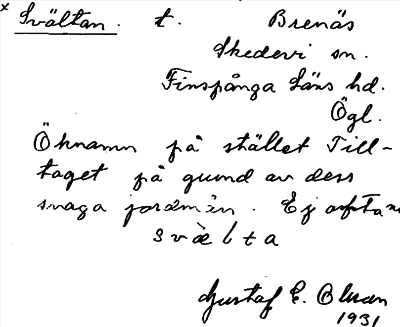 x Svältan. t. Brenäs
Skedevi sn.
Finspånga Läns hd.
Ögl.
Öknamn på stället Till-
taget på grund av dess
svaga jordmån. Ej
svälta
Gustaf E. Olsson
1931